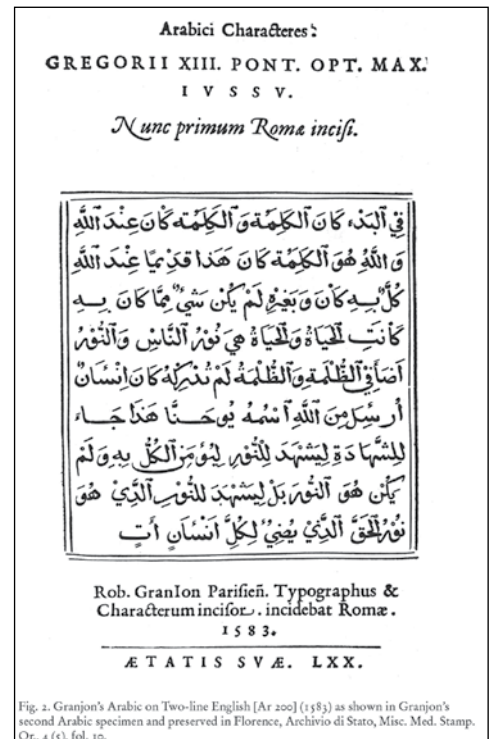 Arabici Characteres:
GREGORII XIII. PONT. OPT. MAX.
IVSSV.
Nunc primum Romæ incisi.
في ٱلبَدْء كَانَ ٱلكَلِمَة وَٱلكَلِمَته كَانَ عِندَ ٱللَّهِ
وَ اللَّهُ هُوَ ٱلكَلِمَة كَانَ هَذا قَدِيمًا عِنْدَ ٱللَّهِ
كُلٌّ بِـهِ كانَ وَ بِغَيْرِهِ لَمْ يَكُن شَيْءٌ مِمَّا كَانَ بِـهِ
كَانَتِ ٱلحَيَاةُ وَٱلحَيَاةُ هِيَ نُورُ ٱلنَّاسِ وَٱلنُّوْرُ
اَضَأَ فِي ٱلظُّلْمَةِ وَٱلظُّلْمَةُ لَمْ تُدْرِكْهُ كَانَ اِنْسَانٌ
أُرْسِلَ مِنَ ٱللَّهِ ٱسْمُهُ يُوحَنَّا هَذَا جَاء
لِلشَّهَادَةِ لِيَشْهَدَ لِلنُّورِ لِيُؤمِنَ ٱلكُلُّ بِهِ وَلَمْ
يَكُن هُوَ ٱلنُّورَ بَلْ لِيَشْهَدَ لِلنُّورِ ٱلَّذِيْ هُوَ
نُوْرُ ٱلحَقِّ ٱلَّذِيْ يُضِيُ لِكُلِّ اَنْسَانٍ أتٍ
Rob. GranIon Parisieñ. Typographus &
Characterum incisor. incidebat Romæ.
1583.
ÆTATIS SVÆ. LXX.
Fig. 2. Granjon's Arabic on Two-line English [Ar 200] (1583) as shown in Granjon's
second Arabic specimen and preserved in Florence, Archivio di Stato, Misc. Med. Stamp.
Or., 4 (5), fol. 10.